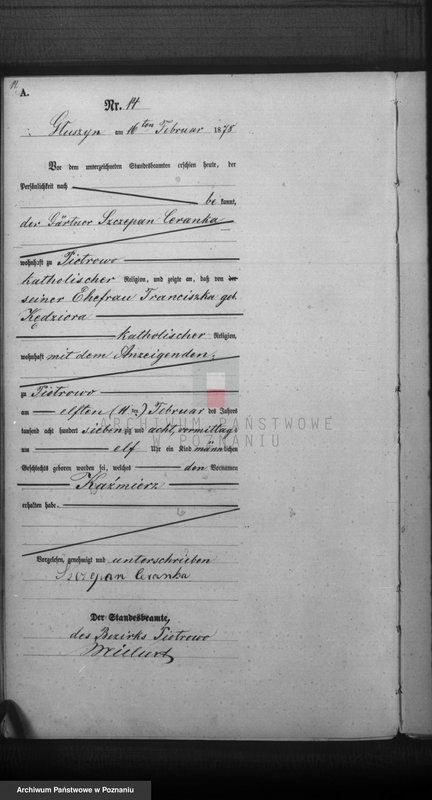 14
A.
Nr. 14
Głuszyn am 16ten Februar 1878
Vor dem unterzeichneten Standesbeamten erschien heute, der
Persönlichkeit nach
be kannt,
der Gärtner Szczepan Ceranka
wohnhaft zu Piotrowo
katholischer Religion, und zeigte an, daß von der
seiner Ehefrau Franciszka geb.
Kędziora
katholischer Religion,
wohnhaft mit dem Anzeigenden,
zu Piotrowo
am elften (11ten) Februar des Jahres
tausend acht hundert siebenzig und acht, vormittags
um elf Uhr ein Kind männlichen
Geschlechts geboren worden sei, welches den Vornamen
Kaźmierz
erhalten habe.
Vorgelesen, genehmigt und unterschrieben
Szczepan Ceranka
Der Standesbeamte,
des Bezirks Piotrowo
ARCHIWUM PAŃSTWOWE
W POZNANIU
Archiwum Państwowe w Poznaniu